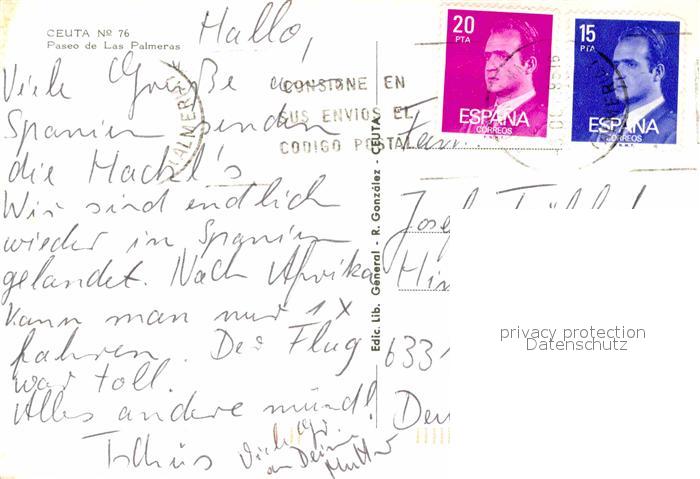 CEUTA Nº 76
Paseo de Las Palmeras
Hallo,
Viele Grüße aus
Spanien senden
die Mackel's
Wir sind endlich
wieder in Spanien
gelandet. Nach Afrika
kann man nur 1 x
fahren. Der Flug
war toll.
Alles andere mündl!
Tschüs
Viele Gr.
an Deine
Mutter
Edic. Lib. General - R. González - CEUTA
CONSIGNE EN
SUS ENVIOS EL
CODIGO POSTAL
20
PTA
ESPAÑA
CORREOS
15
PTA
ESPAÑA
CORREOS
Fam.
Josef
633
privacy protection
Datenschutz